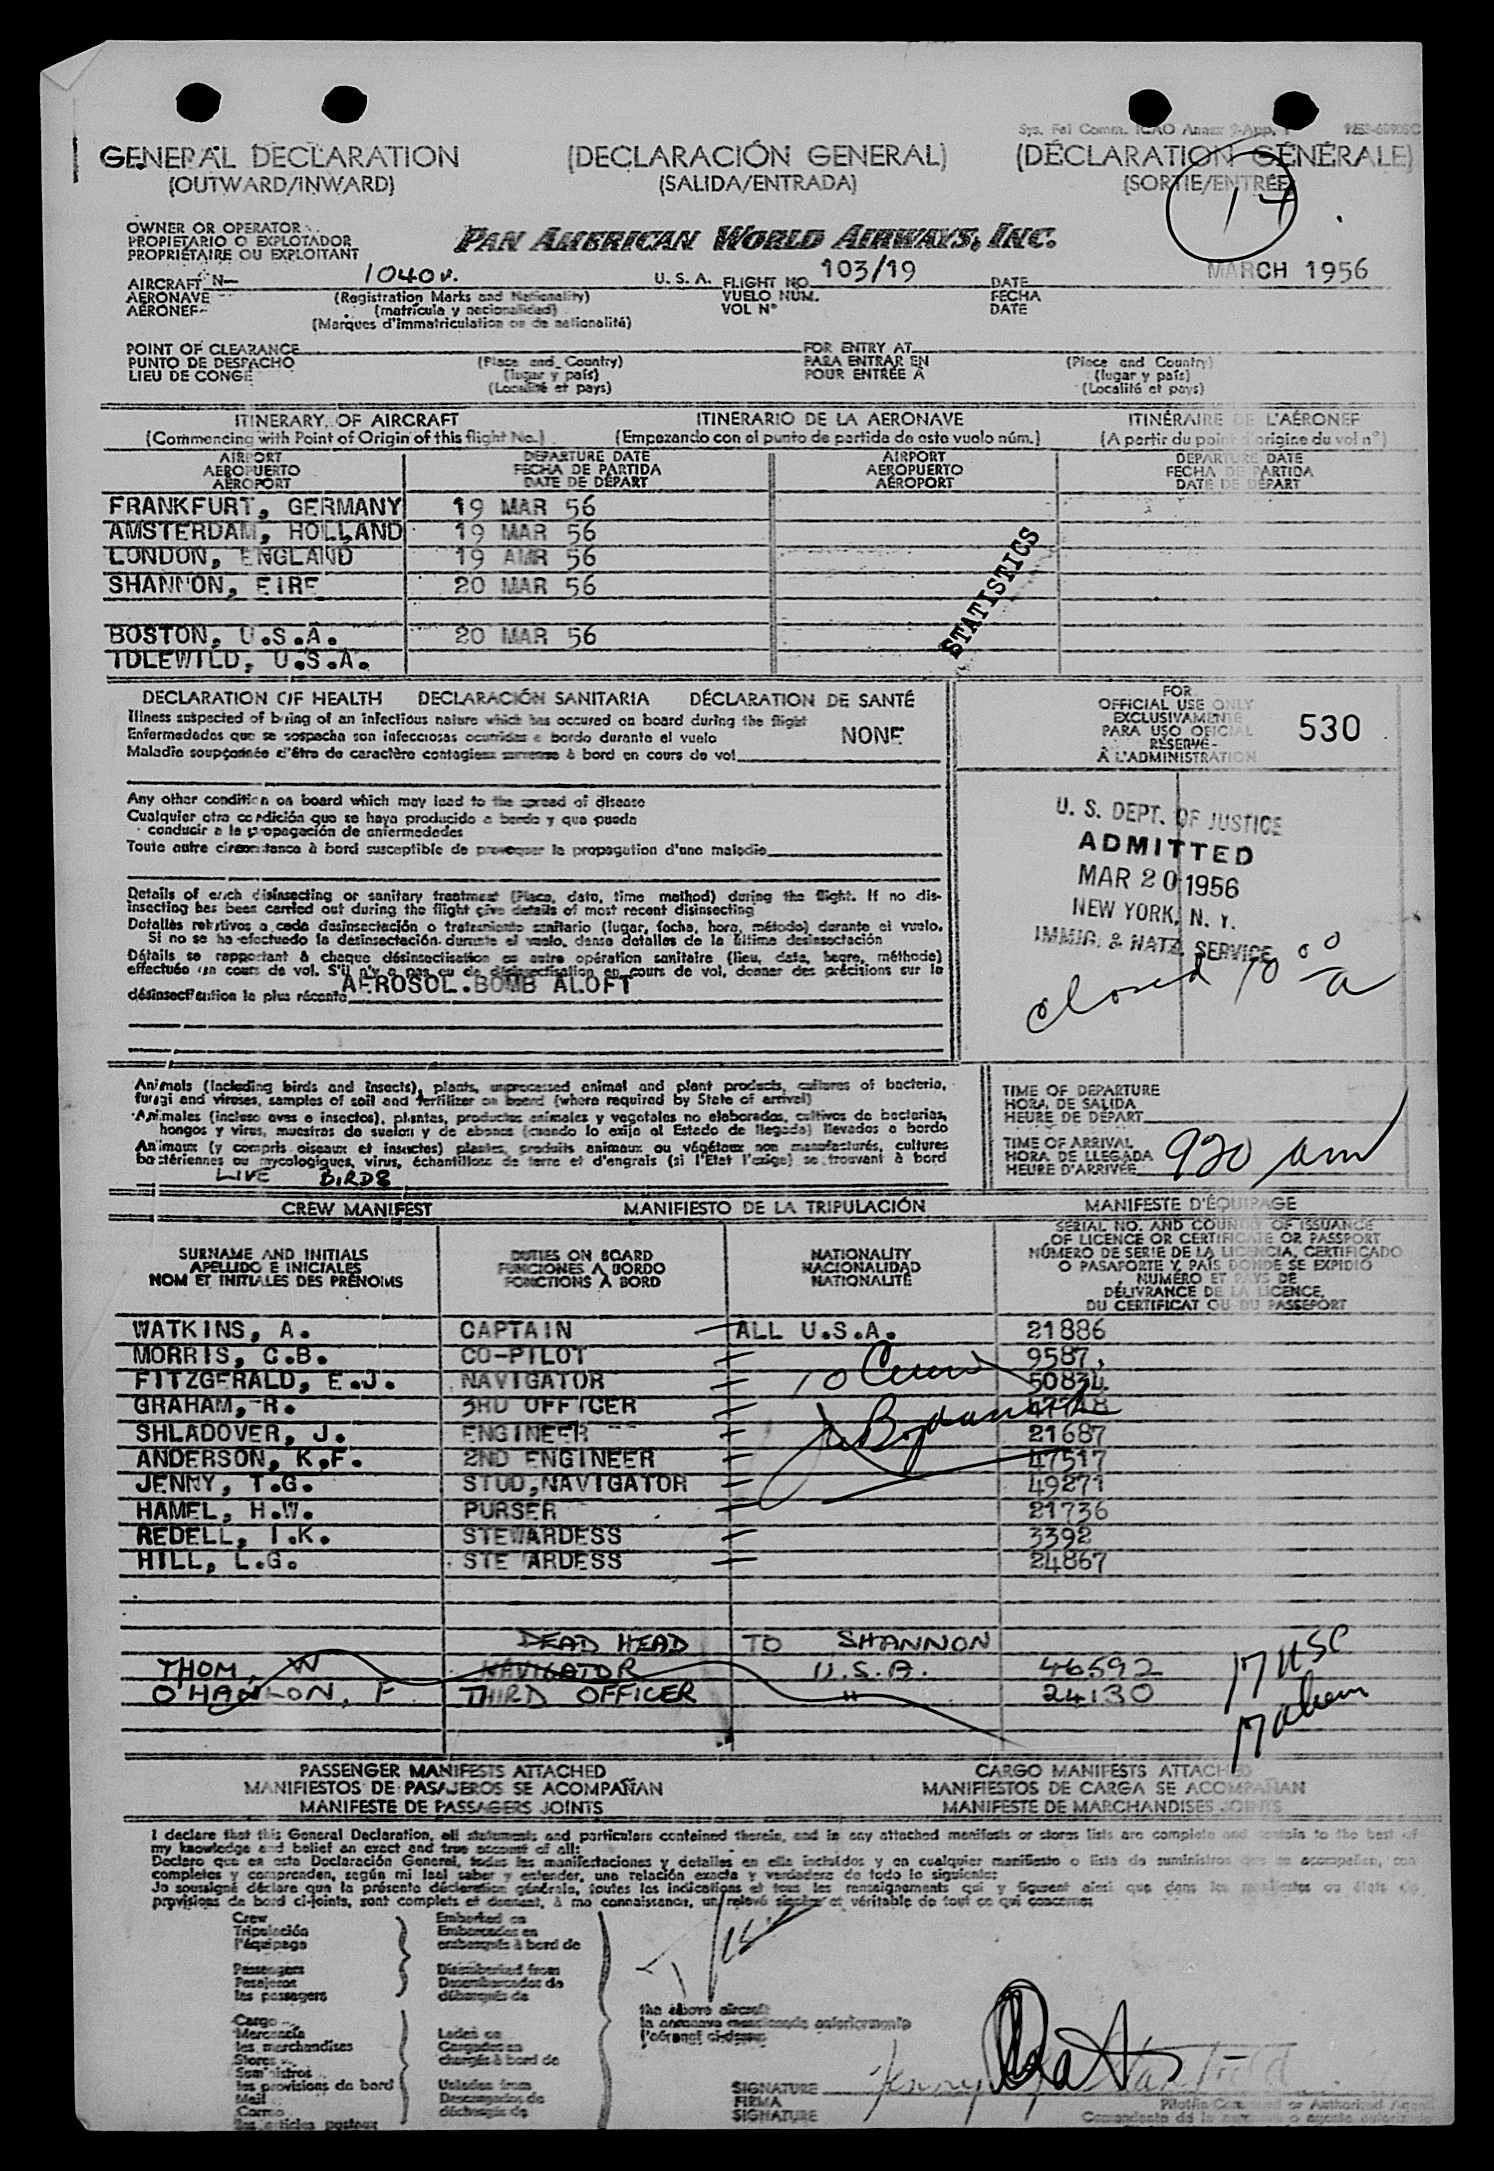 Sys. Fal Comm. ICAO Annex 9-App. 1
GENERAL DECLARATION (DECLARACIÓN GENERAL) (DÉCLARATION GÉNÉRALE)
(OUTWARD/INWARD) (SALIDA/ENTRADA) (SORTIE/ENTRÉE)
17
OWNER OR OPERATOR
PROPIETARIO O EXPLOTADOR
PROPRIÉTAIRE OU EXPLOITANT
PAN AMERICAN WORLD AIRWAYS, INC.
AIRCRAFT N- 1040v. U. S. A. FLIGHT NO. 103/19 DATE MARCH 1956
AERONAVE (Registration Marks and Nationality) VUELO NÚM. FECHA
AÉRONEF (matrícula y nacionalidad) VOL N° DATE
(Marques d'immatriculation ou de nationalité)
POINT OF CLEARANCE FOR ENTRY AT
PUNTO DE DESPACHO (Place and Country) PARA ENTRAR EN (Place and Country)
LIEU DE CONGÉ (lugar y país) POUR ENTRÉE À (lugar y país)
(Localité et pays) (Localité et pays)
ITINERARY OF AIRCRAFT ITINERARIO DE LA AERONAVE ITINÉRAIRE DE L'AÉRONEF
(Commencing with Point of Origin of this flight No.) (Empezando con el punto de partida de este vuelo núm.) (A partir du point d'origine du vol n°)
AIRPORT DEPARTURE DATE AIRPORT DEPARTURE DATE
AEROPUERTO FECHA DE PARTIDA AEROPUERTO FECHA DE PARTIDA
AÉROPORT DATE DE DÉPART AÉROPORT DATE DE DÉPART
FRANKFURT, GERMANY 19 MAR 56
AMSTERDAM, HOLLAND 19 MAR 56
LONDON, ENGLAND 19 AMR 56
SHANNON, EIRE 20 MAR 56
STATISTICS
BOSTON, U.S.A. 20 MAR 56
IDLEWILD, U.S.A.
DECLARATION OF HEALTH DECLARACIÓN SANITARIA DÉCLARATION DE SANTÉ
Illness suspected of being of an infectious nature which has occured on board during the flight
Enfermedades que se sospecha son infecciosas ocurridas a bordo durante el vuelo NONE
Maladie soupçonnée d'être de caractère contagieux survenue à bord en cours de vol
FOR
OFFICIAL USE ONLY
EXCLUSIVAMENTE
PARA USO OFICIAL
RÉSERVÉ
À L'ADMINISTRATION
530
Any other condition on board which may lead to the spread of disease
Cualquier otra condición que se haya producido a bordo y que pueda
conducir a la propagación de enfermedades
Toute autre circonstance à bord susceptible de provoquer la propagation d'une maladie
U. S. DEPT. OF JUSTICE
ADMITTED
MAR 20 1956
NEW YORK, N. Y.
IMMIG. & NATZ. SERVICE
closed 10 00 a
Details of each disinsecting or sanitary treatment (Place, date, time method) during the flight. If no dis-
insecting has been carried out during the flight give details of most recent disinsecting
Detalles relativos a cada desinsectación o tratamiento sanitario (lugar, fecha, hora, método) durante el vuelo.
Si no se ha efectuado la desinsectación durante el vuelo, dense detalles de la última desinsectación
Détails se rapportant à chaque désinsectisation ou autre opération sanitaire (lieu, date, heure, méthode)
effectuée en cours de vol. S'il n'y a pas eu de désinsectisation en cours de vol, donner des précisions sur la
désinsectisation la plus récente AEROSOL BOMB ALOFT
Animals (including birds and insects), plants, unprocessed animal and plant products, cultures of bacteria,
fungi and viruses, samples of soil and fertilizer on board (where required by State of arrival)
Animales (incluso aves e insectos), plantas, productos animales y vegetales no elaborados, cultivos de bacterias,
hongos y virus, muestras de suelos y de abonos (cuando lo exija el Estado de llegada) llevados a bordo
Animaux (y compris oiseaux et insectes) plantes, produits animaux ou végétaux non manufacturés, cultures
bactériennes ou mycologiques, virus, échantillons de terre et d'engrais (si l'Etat l'exige) se trouvant à bord
LIVE BIRDS
TIME OF DEPARTURE
HORA DE SALIDA
HEURE DE DÉPART
TIME OF ARRIVAL
HORA DE LLEGADA
HEURE D'ARRIVÉE 920 am
CREW MANIFEST MANIFIESTO DE LA TRIPULACIÓN MANIFESTE D'ÉQUIPAGE
SURNAME AND INITIALS
APELLIDO E INICIALES
NOM ET INITIALES DES PRÉNOMS
DUTIES ON BOARD
FUNCIONES A BORDO
FONCTIONS À BORD
NATIONALITY
NACIONALIDAD
NATIONALITÉ
SERIAL NO. AND COUNTRY OF ISSUANCE
OF LICENCE OR CERTIFICATE OR PASSPORT
NÚMERO DE SERIE DE LA LICENCIA, CERTIFICADO
O PASAPORTE Y PAÍS DONDE SE EXPIDIÓ
NUMÉRO ET PAYS DE
DÉLIVRANCE DE LA LICENCE,
DU CERTIFICAT OU DU PASSEPORT
WATKINS, A. CAPTAIN ALL U.S.A. 21886
MORRIS, C.B. CO-PILOT 9587
FITZGERALD, E.J. NAVIGATOR 10 Crew 50834
GRAHAM, R. 3RD OFFICER
SHLADOVER, J. ENGINEER 21687
ANDERSON, K.F. 2ND ENGINEER 47517
JENNY, T.G. STUD.NAVIGATOR 49271
HAMEL, H.W. PURSER 21736
REDELL, I.K. STEWARDESS 3392
HILL, L.G. STE ARDESS 24867
DEAD HEAD TO SHANNON
THOM, W NAVIGATOR U.S.A. 46592
O'HANLON, F THIRD OFFICER " 24130
17 USC
17 alien
PASSENGER MANIFESTS ATTACHED CARGO MANIFESTS ATTACHED
MANIFIESTOS DE PASAJEROS SE ACOMPAÑAN MANIFIESTOS DE CARGA SE ACOMPAÑAN
MANIFESTE DE PASSAGERS JOINTS MANIFESTE DE MARCHANDISES JOINTS
I declare that this General Declaration, all statements and particulars contained therein, and in any attached manifests or stores lists are complete and contain to the best of
my knowledge and belief an exact and true account of all:
Declaro que en esta Declaración General, todas las manifestaciones y detalles en ella incluídos y en cualquier manifiesto o lista de suministros que se acompañen, son
completos y comprenden, según mi leal saber y entender, una relación exacta y verdadera de todo lo siguiente:
Je soussigné déclare que la présente déclaration générale, toutes les indications et tous les renseignements qui y figurent ainsi que dans les manifestes ou états de
provisions de bord ci-joints, sont complets et donnent, à ma connaissance, un relevé sincère et véritable de tout ce qui concerne:
Crew Embarked on
Tripulación Embarcados en
l'équipage embarqués à bord de
Passengers Disembarked from
Pasajeros Desembarcados de
les passagers débarqués de
the above aircraft
la aeronave mencionada anteriormente
l'aéronef ci-dessus
Cargo
Mercancía Laden on
les marchandises Cargados en
Stores chargés à bord de
Suministros
les provisions de bord Unladen from
Mail Descargados de
Correo déchargés de
les articles postaux
SIGNATURE
FIRMA
SIGNATURE
Pilot-in-Command or Authorized Agent